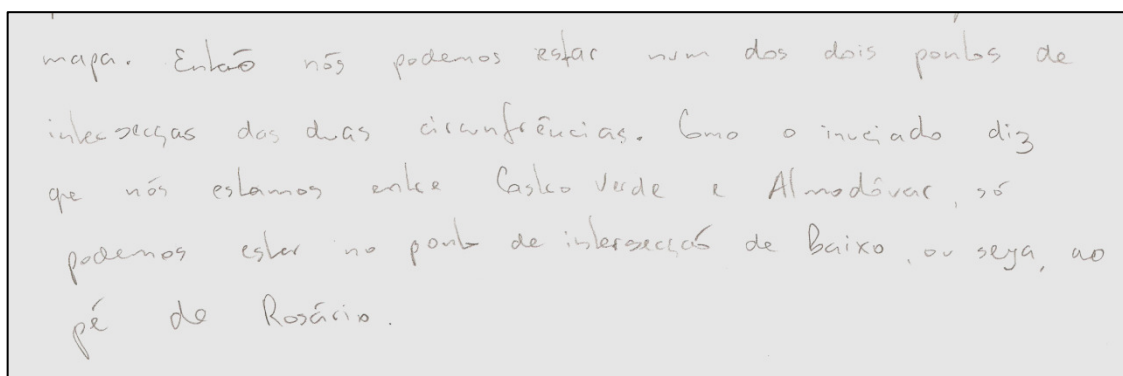 mapa. Então nós podemos estar num dos dois pontos de
intersecças das duas circunfrências. Como o inuciado diz
que nós estamos entre Castro Verde e Almodôvar, só
podemos ester no ponto de intersecçaõ de Baixo, ou seya, ao
pé de Rosário.